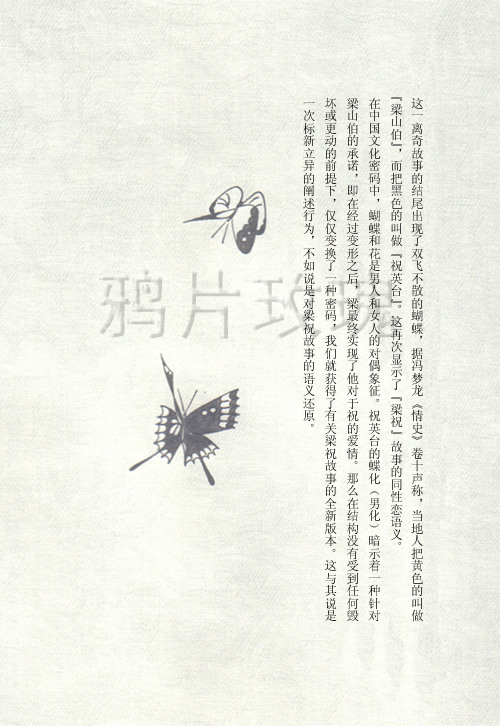 这一离奇故事的结尾出现了双飞不散的蝴蝶，据冯梦龙《情史》卷十声称，当地人把黄色的叫做
『梁山伯』，而把黑色的叫做『祝英台』。这再次显示了『梁祝』故事的同性恋语义。
在中国文化密码中，蝴蝶和花是男人和女人的对偶象征。祝英台的蝶化（男化）暗示着一种针对
梁山伯的承诺，即在经过变形之后，梁最终实现了他对于祝的爱情。那么在结构没有受到任何毁
坏或更动的前提下，仅仅变换了一种密码，我们就获得了有关梁祝故事的全新版本。这与其说是
一次标新立异的阐述行为，不如说是对梁祝故事的语义还原。
鸦片玫瑰